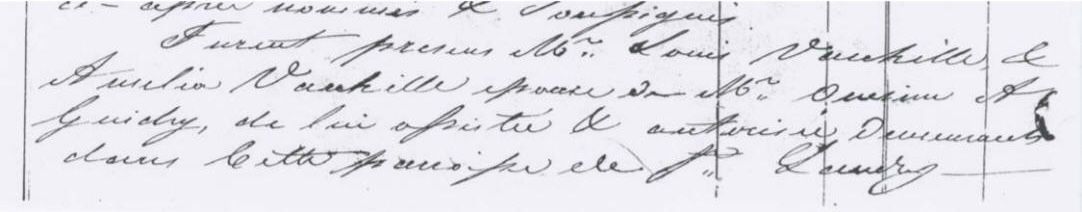 ci-après nommés & Soussignés
Furent presens Mr. Louis Vauhille, &
Aurelia Vauhille epouse de Mr. Onesime A
Guidry, de lui assistée & autorisée, Demeurants
dans Cette paroisse de St. Landry